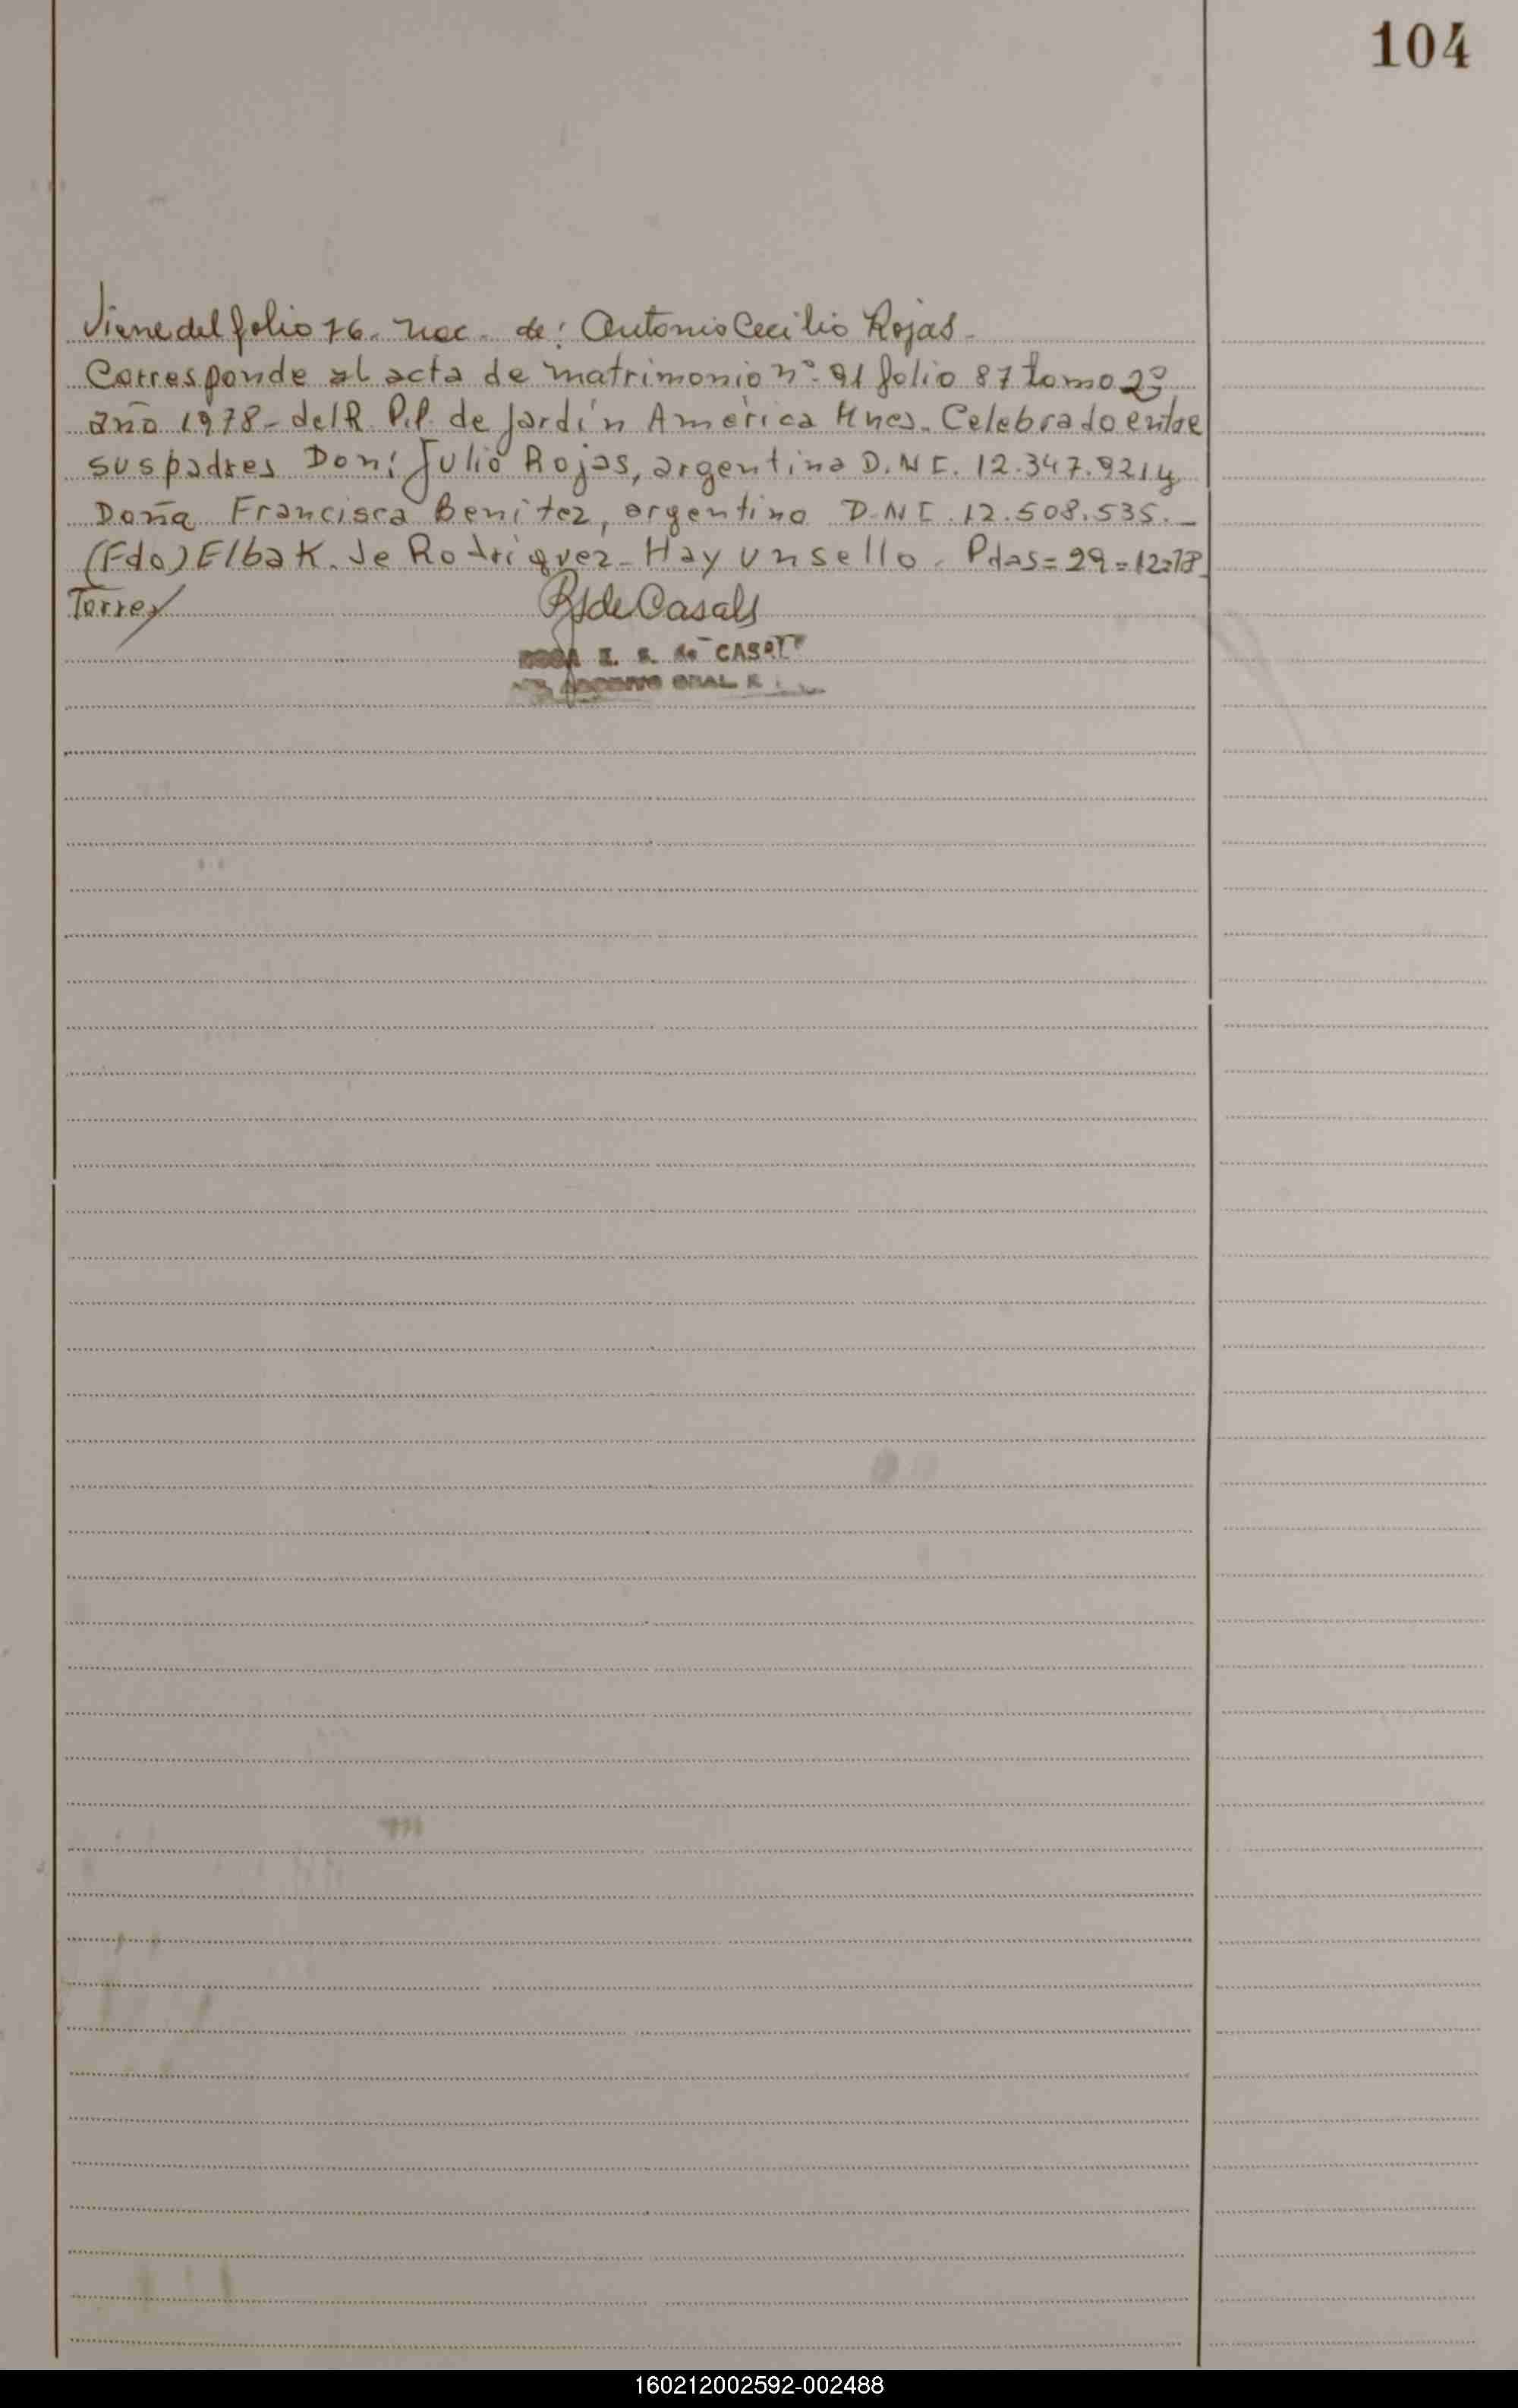 104
Viene del folio 76. Nac. de: Antonio Cecilio Rojas-
Corresponde al acta de matrimonio nº- 91 folio 87 tomo 2º
año 1978- del R. P.P. de Jardín América Mnes. Celebrado entre
sus padres Don: Julio Rojas, argentino D.N.I. 12.347.921 y
Doña Francisca Benitez, argentina D.N.I. 12.508.535.-
(Fdo) Elba K. de Rodriguez- Hay un sello. Pdas=29=12=78
Torres
RS de Casals
ROSA I. S. de CASALS
ARCHIVO GRAL R
160212002592-002488